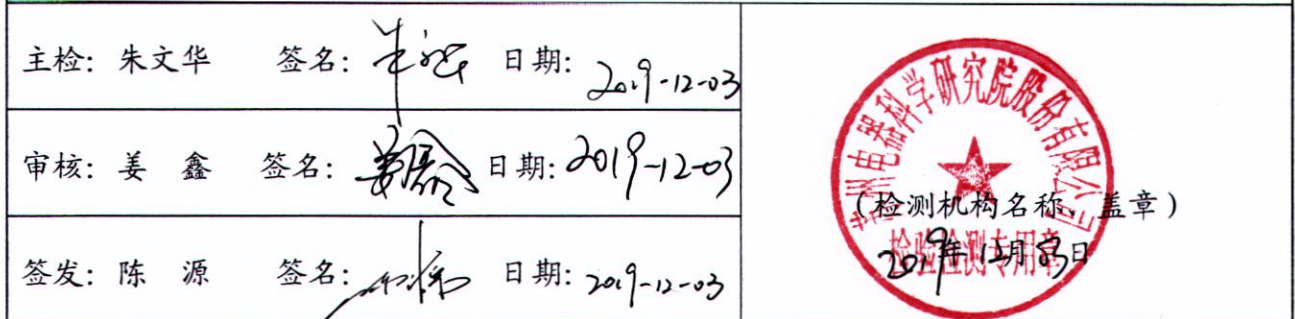 主检: 朱文华 签名: 日期: 2019-12-03
审核: 姜 鑫 签名: 姜鑫 日期: 2019-12-03
签发: 陈 源 签名: 日期: 2019-12-03
苏州电器科学研究院股份有限公司
(检测机构名称、盖章)
检验检测专用章
2019年12月03日